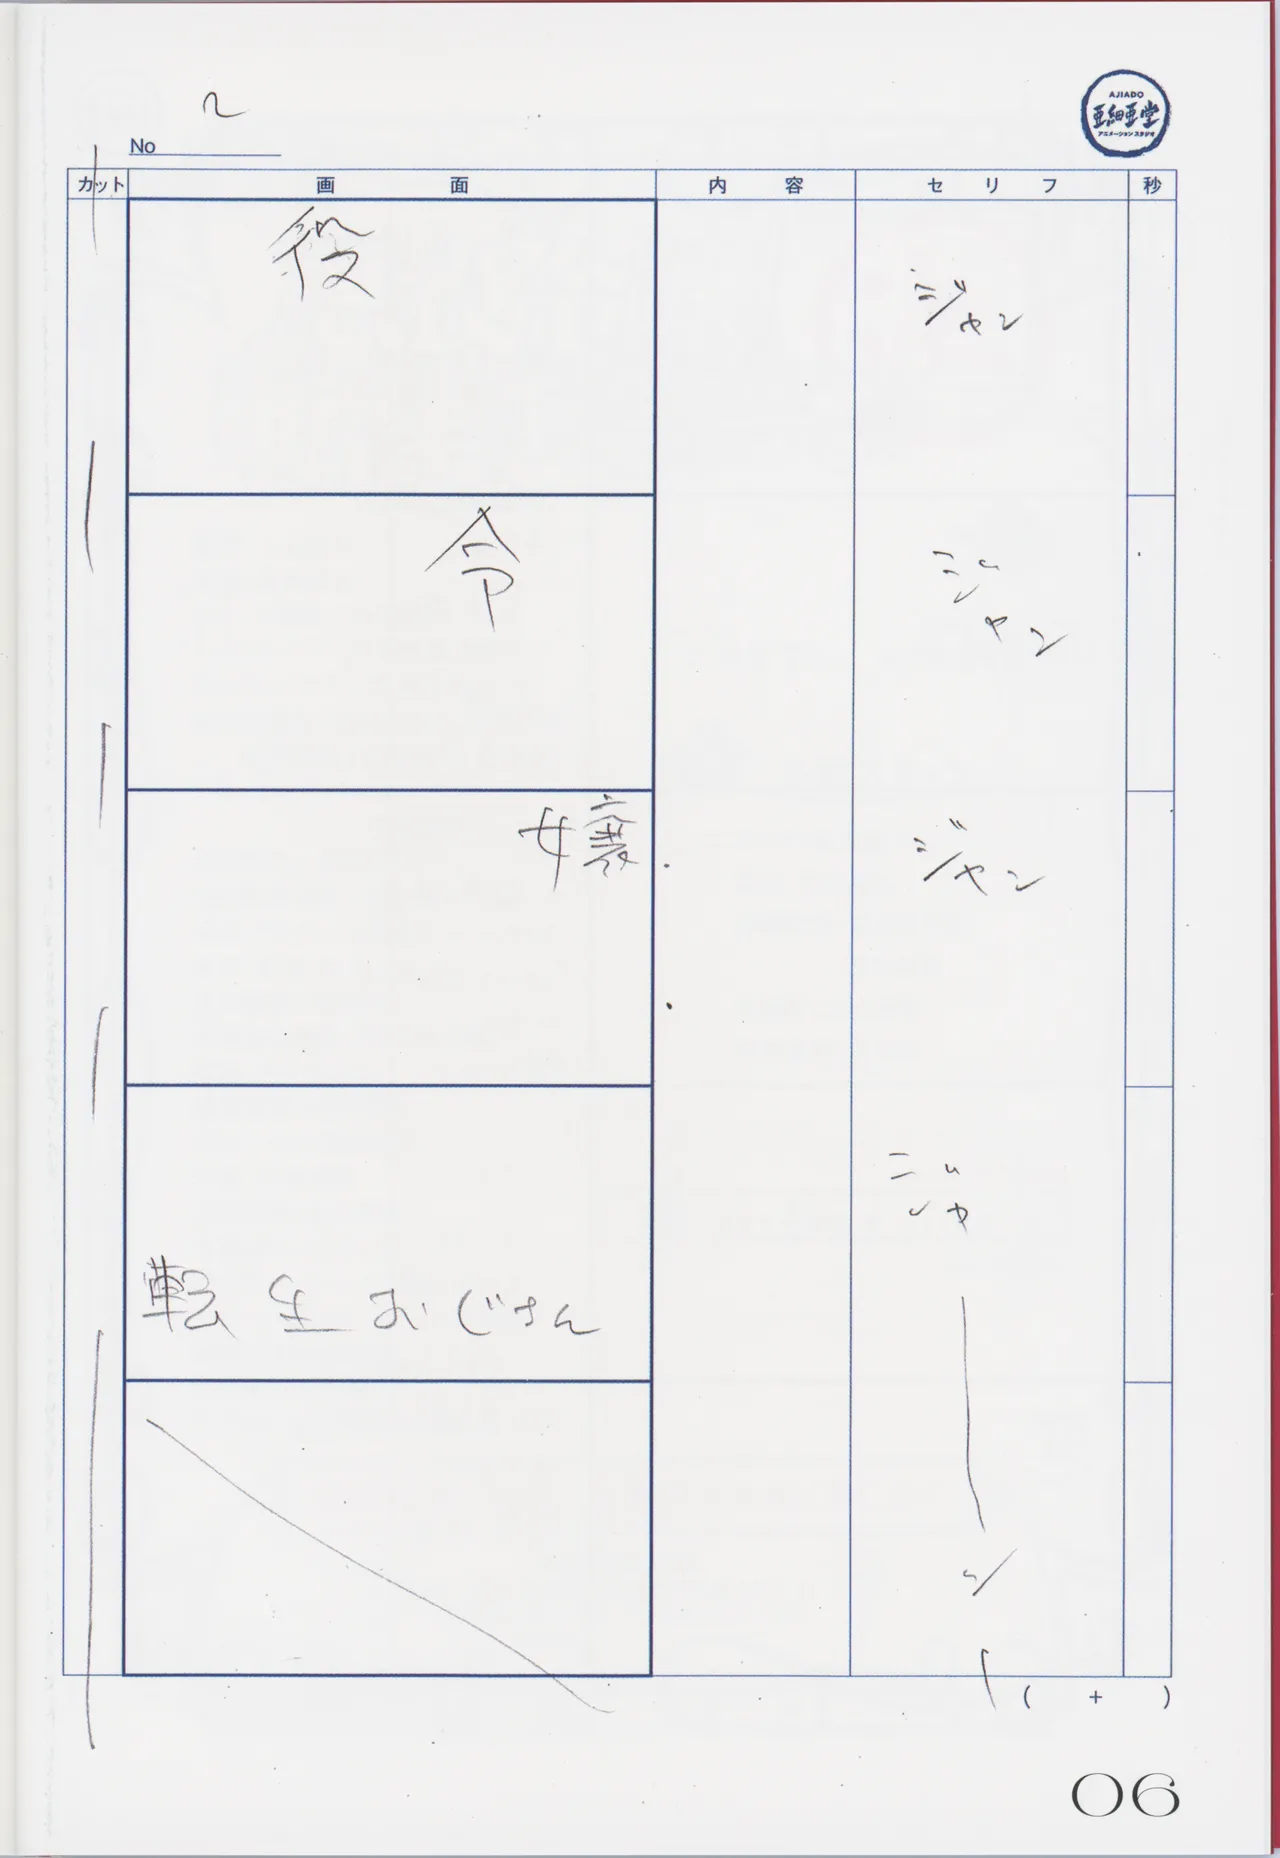 2
No
AJIADO
亜細亜堂
アニメーションスタジオ
カット 画面 内容 セリフ 秒
役 ジャン
令 ジャン
嬢 ジャン
ジャ
転生おじさん
ン
( + )
06